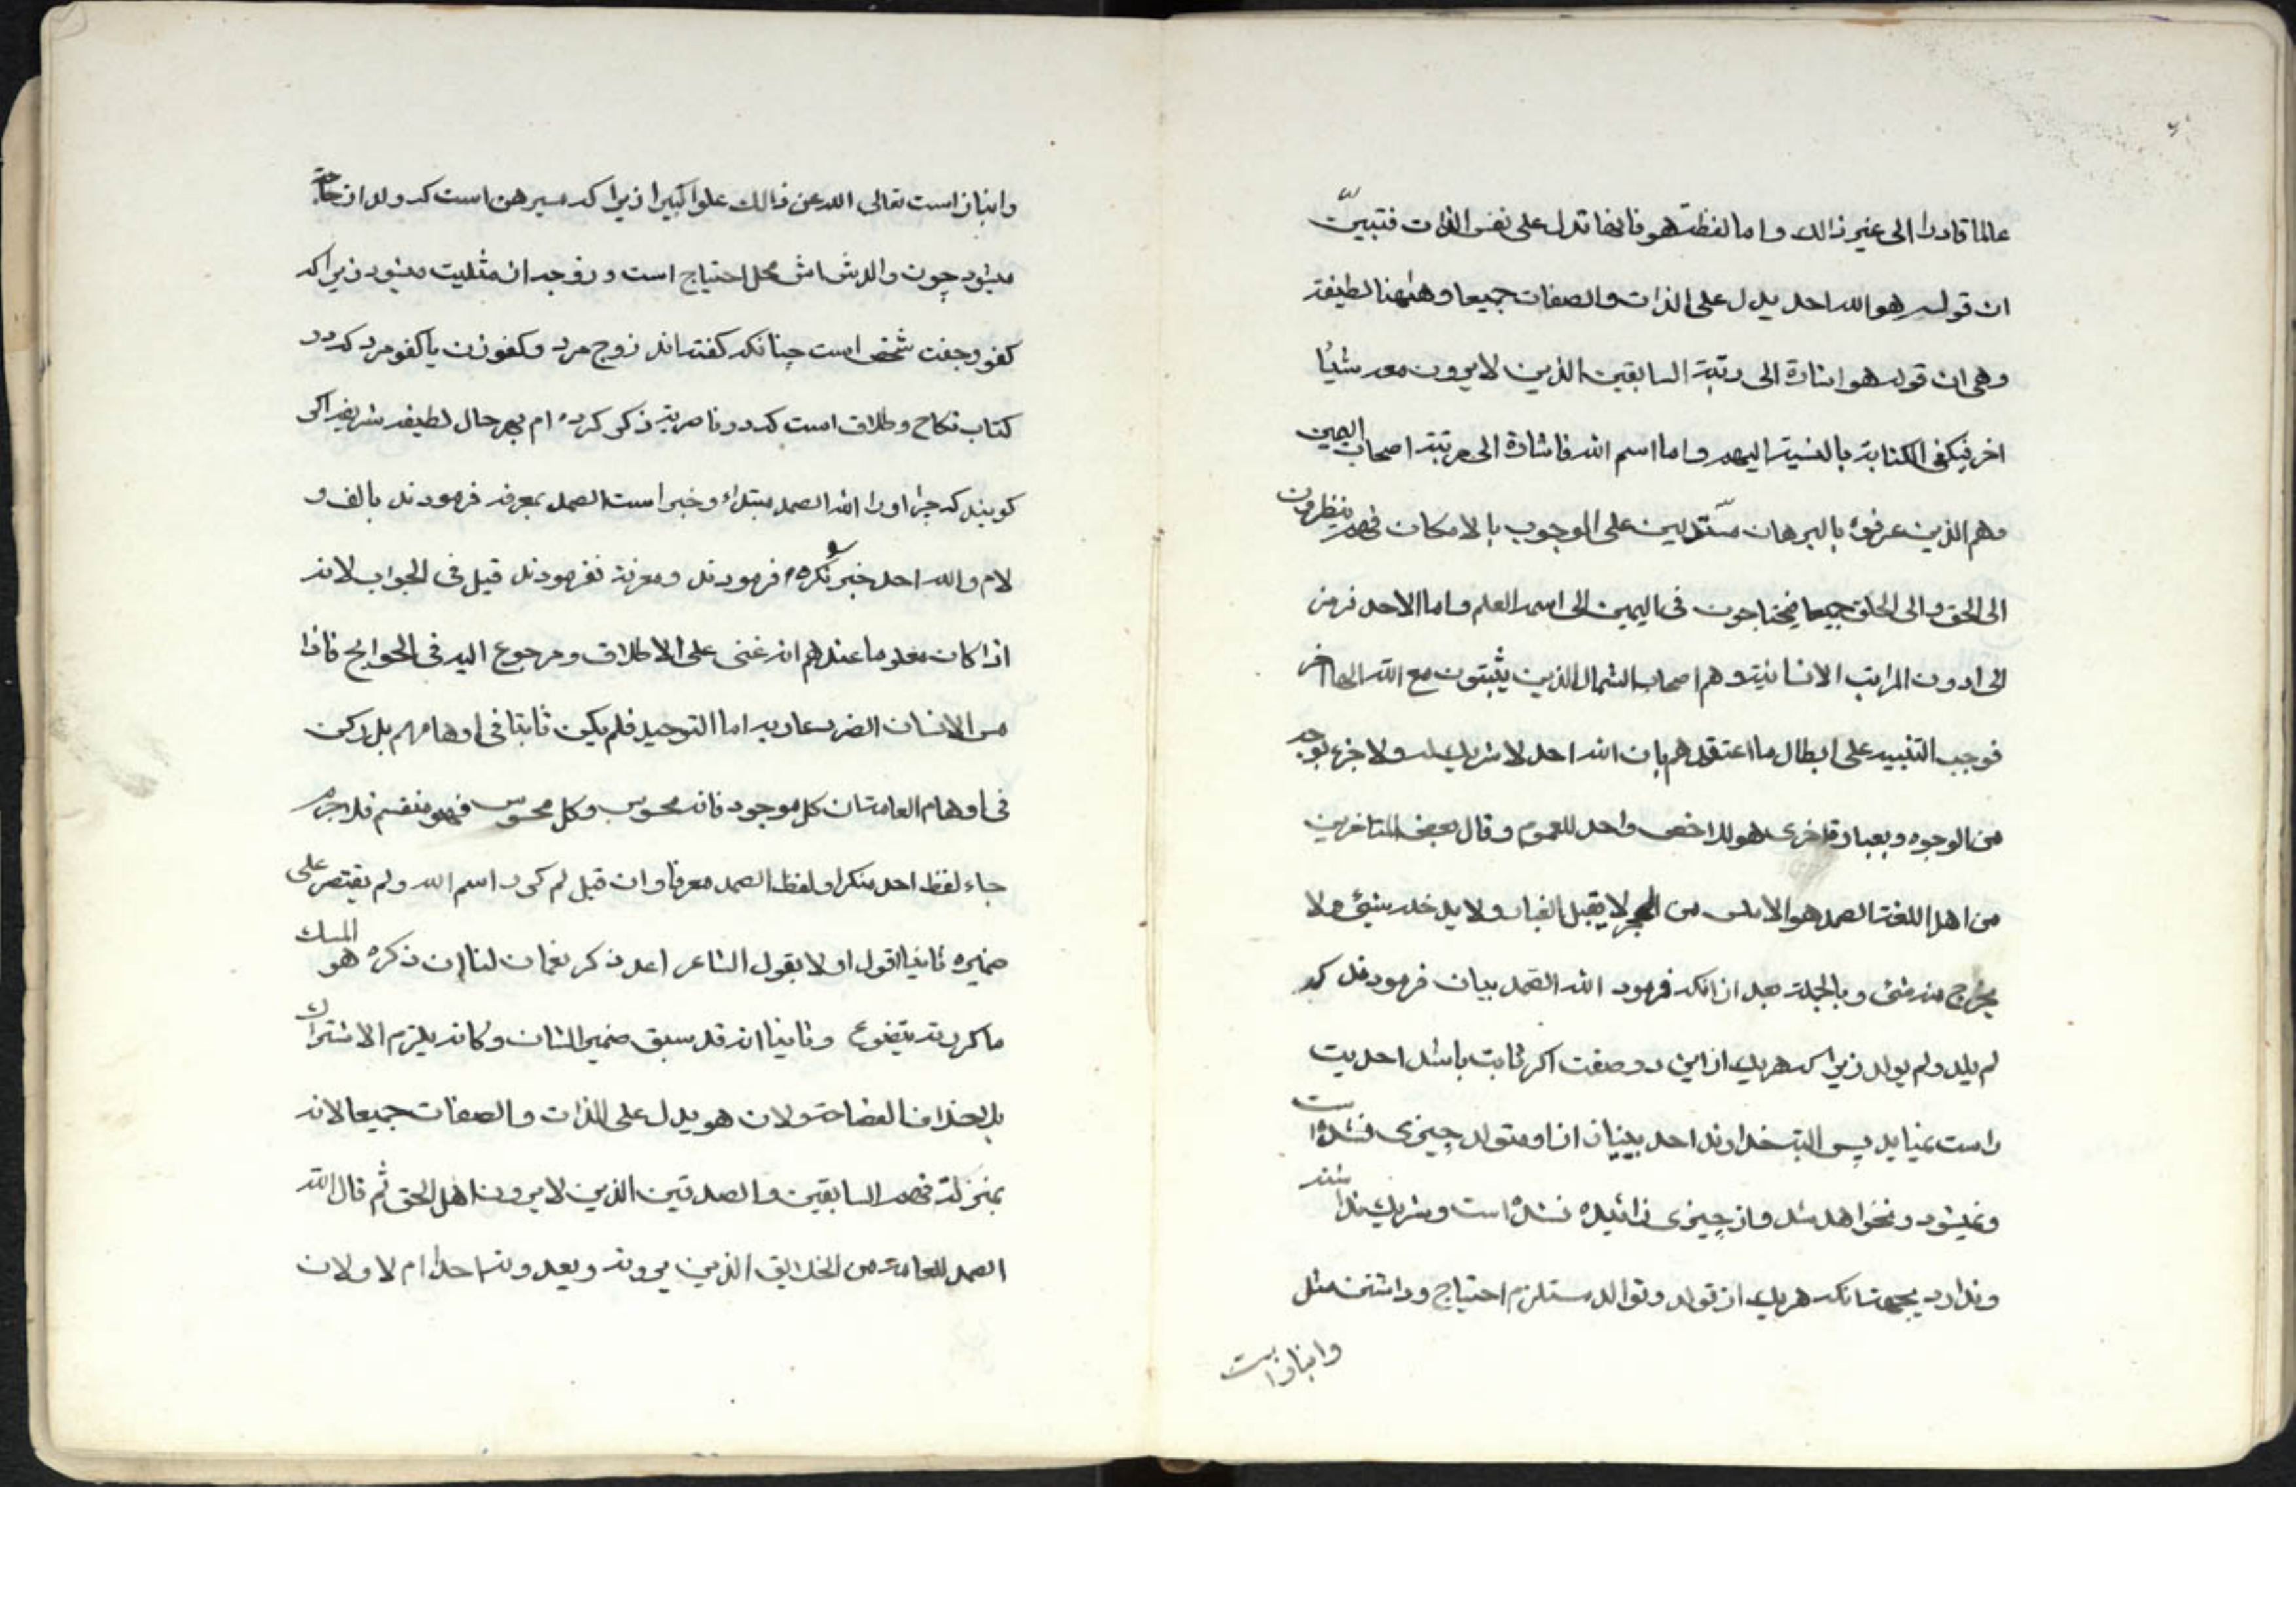 عالما قادرا الى غير ذالك واما لفظة هو فانها تدل على نفس الذات فتبيّن
ان قوله هو الله احد يدل على الذات والصفات جميعا وههنا لطيفة
وهى ان قوله هو اشارة الى رتبة السابقين الذين لا يرون معه شيئا
اخر فيكفى الكناية بالنسبة اليهم واما اسم الله فاشارة الى مرتبة اصحاب اليمين
وهم الذين عرفوه بالبرهان مستدلين على الوجوب بالامكان فهم ينظرون
الى الحق والى الخلق جميعا فيحتاجون فى اليمين الى اسم العلم واما الاحد فرمز
الى ادون المراتب الانسانية وهم اصحاب الشمال الذين يثبتون مع الله الها اخر
فوجب التنبيه على ابطال ما اعتقدهم بان الله احد لا شريك له ولا جزء بوجه
من الوجوه وبعبارة اخرى هو لاخص واحد للعموم وقال بعض المتاخرين
من اهل اللغة الصمد هو الاملس من الحجر لا يقبل الغبار ولا يدخله شيئ ولا
يخرج منه شئ وبالجملة بعد از انكه فرمود الله الصمد بيان فرمودند كه
لم يلد ولم يولد زيرا كه هريك از اين دو صفت اكر ثابت باشد احديت
راست نميايد پس البته خداوند احد بينياز از او متولد چيزى نشده است
ونميشود ونخواهد شد واز چيزى زائيده نشده است وشريك نداشته
وندارد بجهت انكه هريك از تولد وتوالد مستلزم احتياج وداشتن مثل
وانباز است
وانباز است تعالى الله عن ذالك علوا كبيرا زيرا كه مبرهن است كه ولد از حاجة
ميشود چون والدش اش محل احتياج است وزوجه از مثليت ميشود زيرا كه
كفو وجفت شخص است چنانكه كفته اند زوج مرد وكفو زن يا كفو مرد كه در
كتاب نكاح وطلاق است كه در ناصريه ذكر كرده ام بهر حال لطيفه شريفه اكر
كويند كه چرا در الله الصمد مبتداء وخبر است الصمد بمعرفه فرمودند بالف و
لام والله احد خبر نكره فرمودند ومعرفة نفرمودند قيل فى الجواب لانه
اذا كان معلوما عندهم انه غنى على الاطلاق ومرجوع اليه فى الحوايج فاذا
مس الانسان الضر دعا ربه اما التوحيد فلم يكن ثابتا فى اوهامهم بل ركن
فى اوهام العامة ان كل موجود فانه محسوس وكل محسوس فهو منقسم فلا جرم
جاء لفظ احد منكرا ولفظ الصمد معرفا وان قيل لم كرر اسم الله ولم يقتصر على
ضميره ثانيا اقول اولا بقول الشاعر اعد ذكر نعمان لنا ان ذكره هو المسك
ما كررته يتضوع وثانيا انه قد سبق ضمير الشان وكانه يلزم الاشتراك
بل بخلاف الفصاحة ولان هو يدل على الذات والصفات جميعا لانه
بمنزلة فهم السابقين والصديقين الذين لا يرون اهل الحق ثم قال الله
الصمد للعامة من الخلايق الذين يرونه ويعدونه احدا ام لا ولان